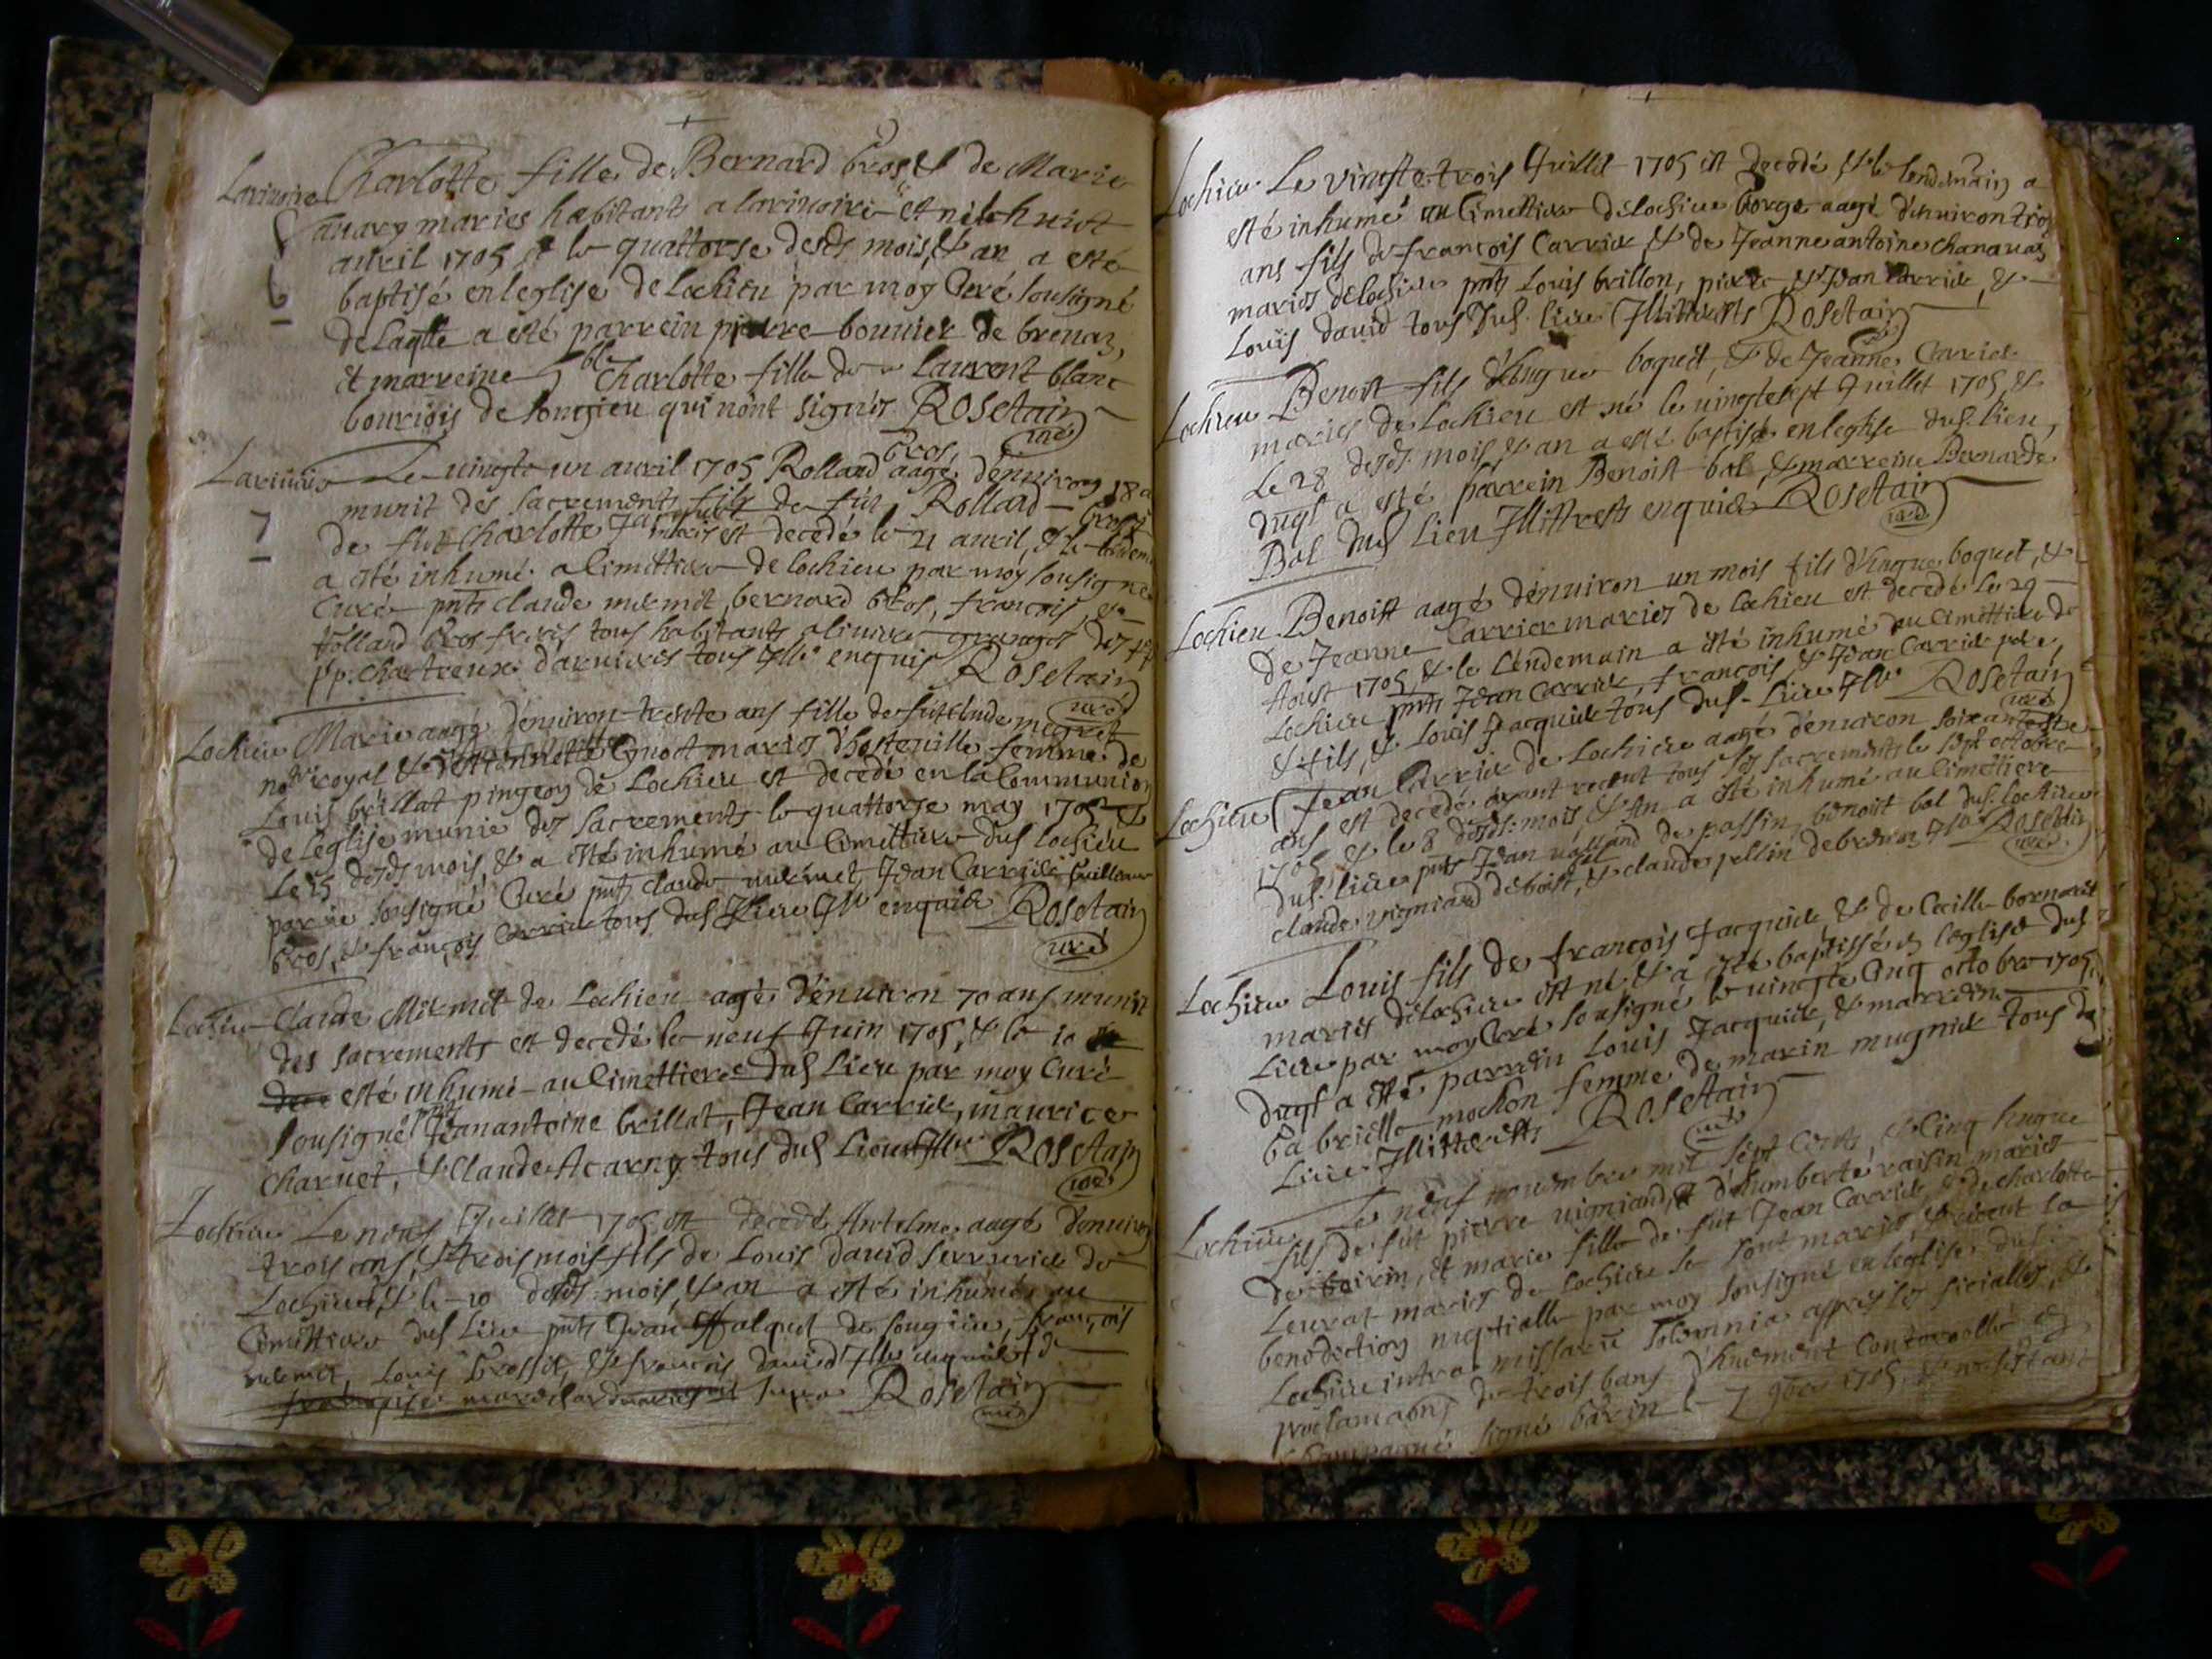 Charlotte fille de Bernard Gros, & de Marie
Larivoire
auary mariés habitants a larivoire est née le huict
auril 1705 & le quattorse desds mois, & an a esté
6
baptisé en leglise de lochieu par moy Curé sousigné
de laqlle a esté parrein pierre bonnier de brenaz,
et marreine Charlotte fille de sr laurent blanc
bouriois de songieu qui nónt signés Rosetain
curé
Lariuoire Le vingte un auril 1705 Rolland Gros aagé dénuiron 18 a
7
munit des sacrements fils de fût Rolland Gros &
de fût Charlotte est decedé le 21 auril, & le
a esté inhumé a cimettiere de lochieu par moy sousigné
Curé pnts claude mermet, bernard Gros, françois, &
Rolland Gros freres tous habitants a granges des
pp. Chartreux d'aruieres tous Ille enquis Rosetain
curé
Lochieu Marie aagé dénuiron trente ans fille de fût Claude
nore royal & mariés d'hosteuille femme de
Louis brillat pingeon de Lochieu est decedé en la Communion
de leglise munie des sacrements le quattorse may 1705 &
Le 15 desds mois, & a esté inhumé au Cimettiere dus lochieu
par me sousigné Curé pnts claude mermet Jean Carrier Guilleaume
Gros, & françois Carrier tous dus lieu Ille enquis Rosetain
curé
Lochieu Claude Mermet de Lochieu agé d'énuiron 70 ans munit
des sacrements est decedé le neuf Juin 1705, & le 10
esté inhumé au Cimettiere dus Lieu par moy Curé
sousigné pnts Jeanantoine brillat, Jean Carrier, maurice
Charuet, & Claude Acarry tous dus Lieu Ille Rosetain
curé
Lochieu Le neuf Juillet 1705 est decedé Antelme aagé d'enuiron
trois ans, & trois mois fils de Louis dauid serrurier de
Lochieu, & le 10 desds mois, & an a esté inhumé au
Cimettiere dus Lieu pnts Jean falquet de songieu, françois
mermet, Louis Grosset, & françois dauid Ille enquis
Rosetain
curé
Lochieu Le vingte trois Juillet 1705 est decedé & le lendemain a
esté inhumé au Cimettiere de Lochieu George aagé d'enuiron trois
ans fils de françois Carrier & de Jeanne antoine chanauaz
mariés de lochieu pnts Louis brillon, pierre & Jean Carrier, &
Louis dauid tous dus. lieu Illitterés Rosetain
Lochieu Benoist fils d'hugue boquet, & de Jeanne Carrier
mariés de Lochieu est né le vingtesept Juillet 1705 &
Le 28 desds. mois, & an a esté baptisé en leglise dus. lieu,
duql a esté parrein Benoist bal, & marreine Bernarde
Bal dus Lieu Illitterés enquis Rosetain
curé
Lochieu Benoist aagé dénuiron un mois fils d'hugue boquet, &
de Jeanne Carrier mariés de lochieu est decedé le 29
Aoust 1705, & le Lendemain a esté inhumé au Cimettiere de
Lochieu pnts Jean Carrier, françois & Jean Carrier pere,
& fils, & Louis Jacquier tous dus. Lieu Ille Rosetain
curé
Lochieu Jean Carrier de Lochieu aagé dénuiron soixante
ans est decedé ayant receut tous ses sacrements le sept octobre
1705 & le 8 desds. mois & An a esté inhumé au Cimettiere
dus. lieu pnts Jean de passin, benoist bal dus. lochieu
claude uigniand & claude pellin de brenaz Ille Rosetain
curé
Lochieu Louis fils de françois Jacquier, & de Cecille bornarel
mariés de lochieu est né & a esté baptissé en leglise dus
Lieu par moy Curé sousigné le vingte Cinq octobre 1705,
duql a esté parrein Louis Jacquier, & marreine
Gabrielle mochon femme de marin mugnier tous du
Lieu Illitterés Rosetain
curé
Lochieu Le neuf nouembre mil sept Cents, & Cinq hugue
fils de fût pierre uigniand, & d'humberte raisin mariés
de et marie fille de fût Jean Carrier & de charlotte
Leurat mariés de Lochieu se sont mariés, & receut la
benediction nuptialle par moy sousigné en leglise dus.
Lochieu intra missarũ solemnia apprés les fiiallies, &
proclamaons de trois bans d'huement Controollé
signé Garin le 7 9bre 1705, &